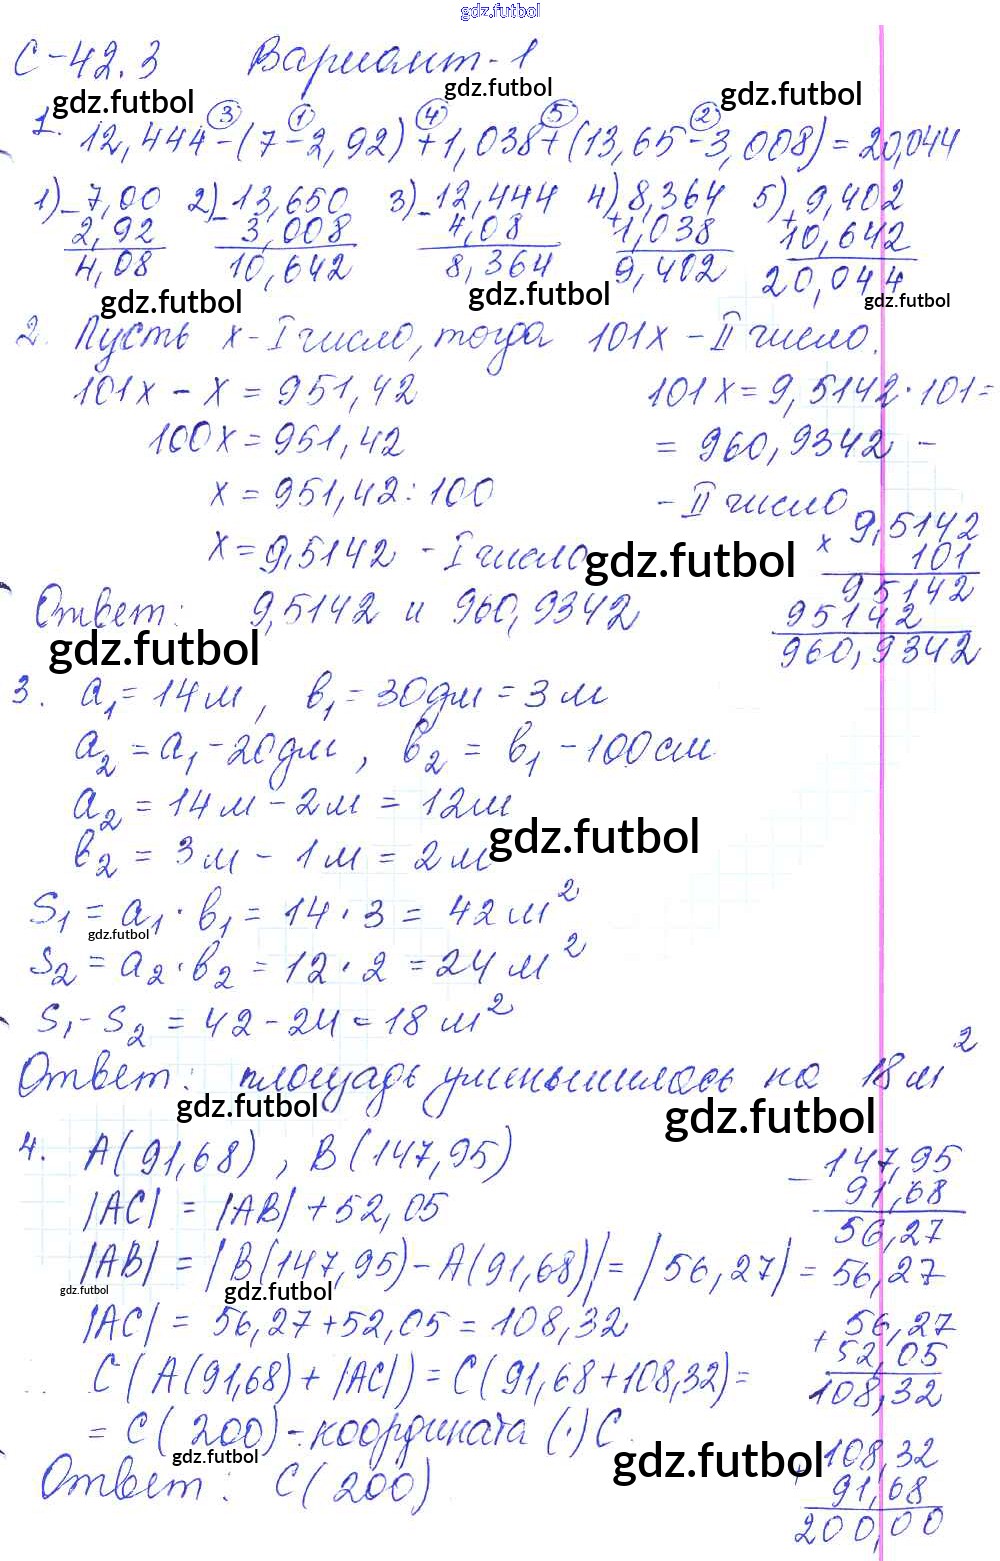 gdz.futbol
С-42.3 Вариант-1
gdz.futbol gdz.futbol gdz.futbol
③ ① ④ ⑤ ②
1. 12,444-(7-2,92)+1,038+(13,65-3,008)=20,044
1) -7,00 2) -13,650 3) -12,444 4) 8,364 5) 9,402
2,92 3,008 4,08 +1,038 +10,642
4,08 10,642 8,364 9,402 20,044
gdz.futbol gdz.futbol gdz.futbol
2. Пусть x-I число, тогда 101x-II число.
101x - x = 951,42 101x = 9,5142·101=
100x = 951,42 = 960,9342 -
x = 951,42:100 - II число
x = 9,5142 - I число
gdz.futbol
9,5142
x 101
95142
95142
960,9342
Ответ: 9,5142 и 960,9342
gdz.futbol
3. a₁=14м, в₁=30дм=3м
a₂=a₁-20дм, в₂=в₁-100см
a₂=14м-2м=12м
в₂=3м-1м=2м
gdz.futbol
S₁=a₁·в₁=14·3=42м²
gdz.futbol
S₂=a₂·в₂=12·2=24м²
S₁-S₂=42-24=18м²
Ответ: площадь уменьшилась на 18м²
gdz.futbol gdz.futbol
4. A(91,68), B(147,95)
-147,95
91,68
56,27
|AC|=|AB|+52,05
|AB|=|B(147,95)-A(91,68)|=|56,27|=56,27
gdz.futbol gdz.futbol
|AC|=56,27+52,05=108,32
56,27
+52,05
108,32
C(A(91,68)+|AC|)=C(91,68+108,32)=
=C(200)-координата (·)C.
gdz.futbol gdz.futbol
+108,32
91,68
200,00
Ответ: C(200)